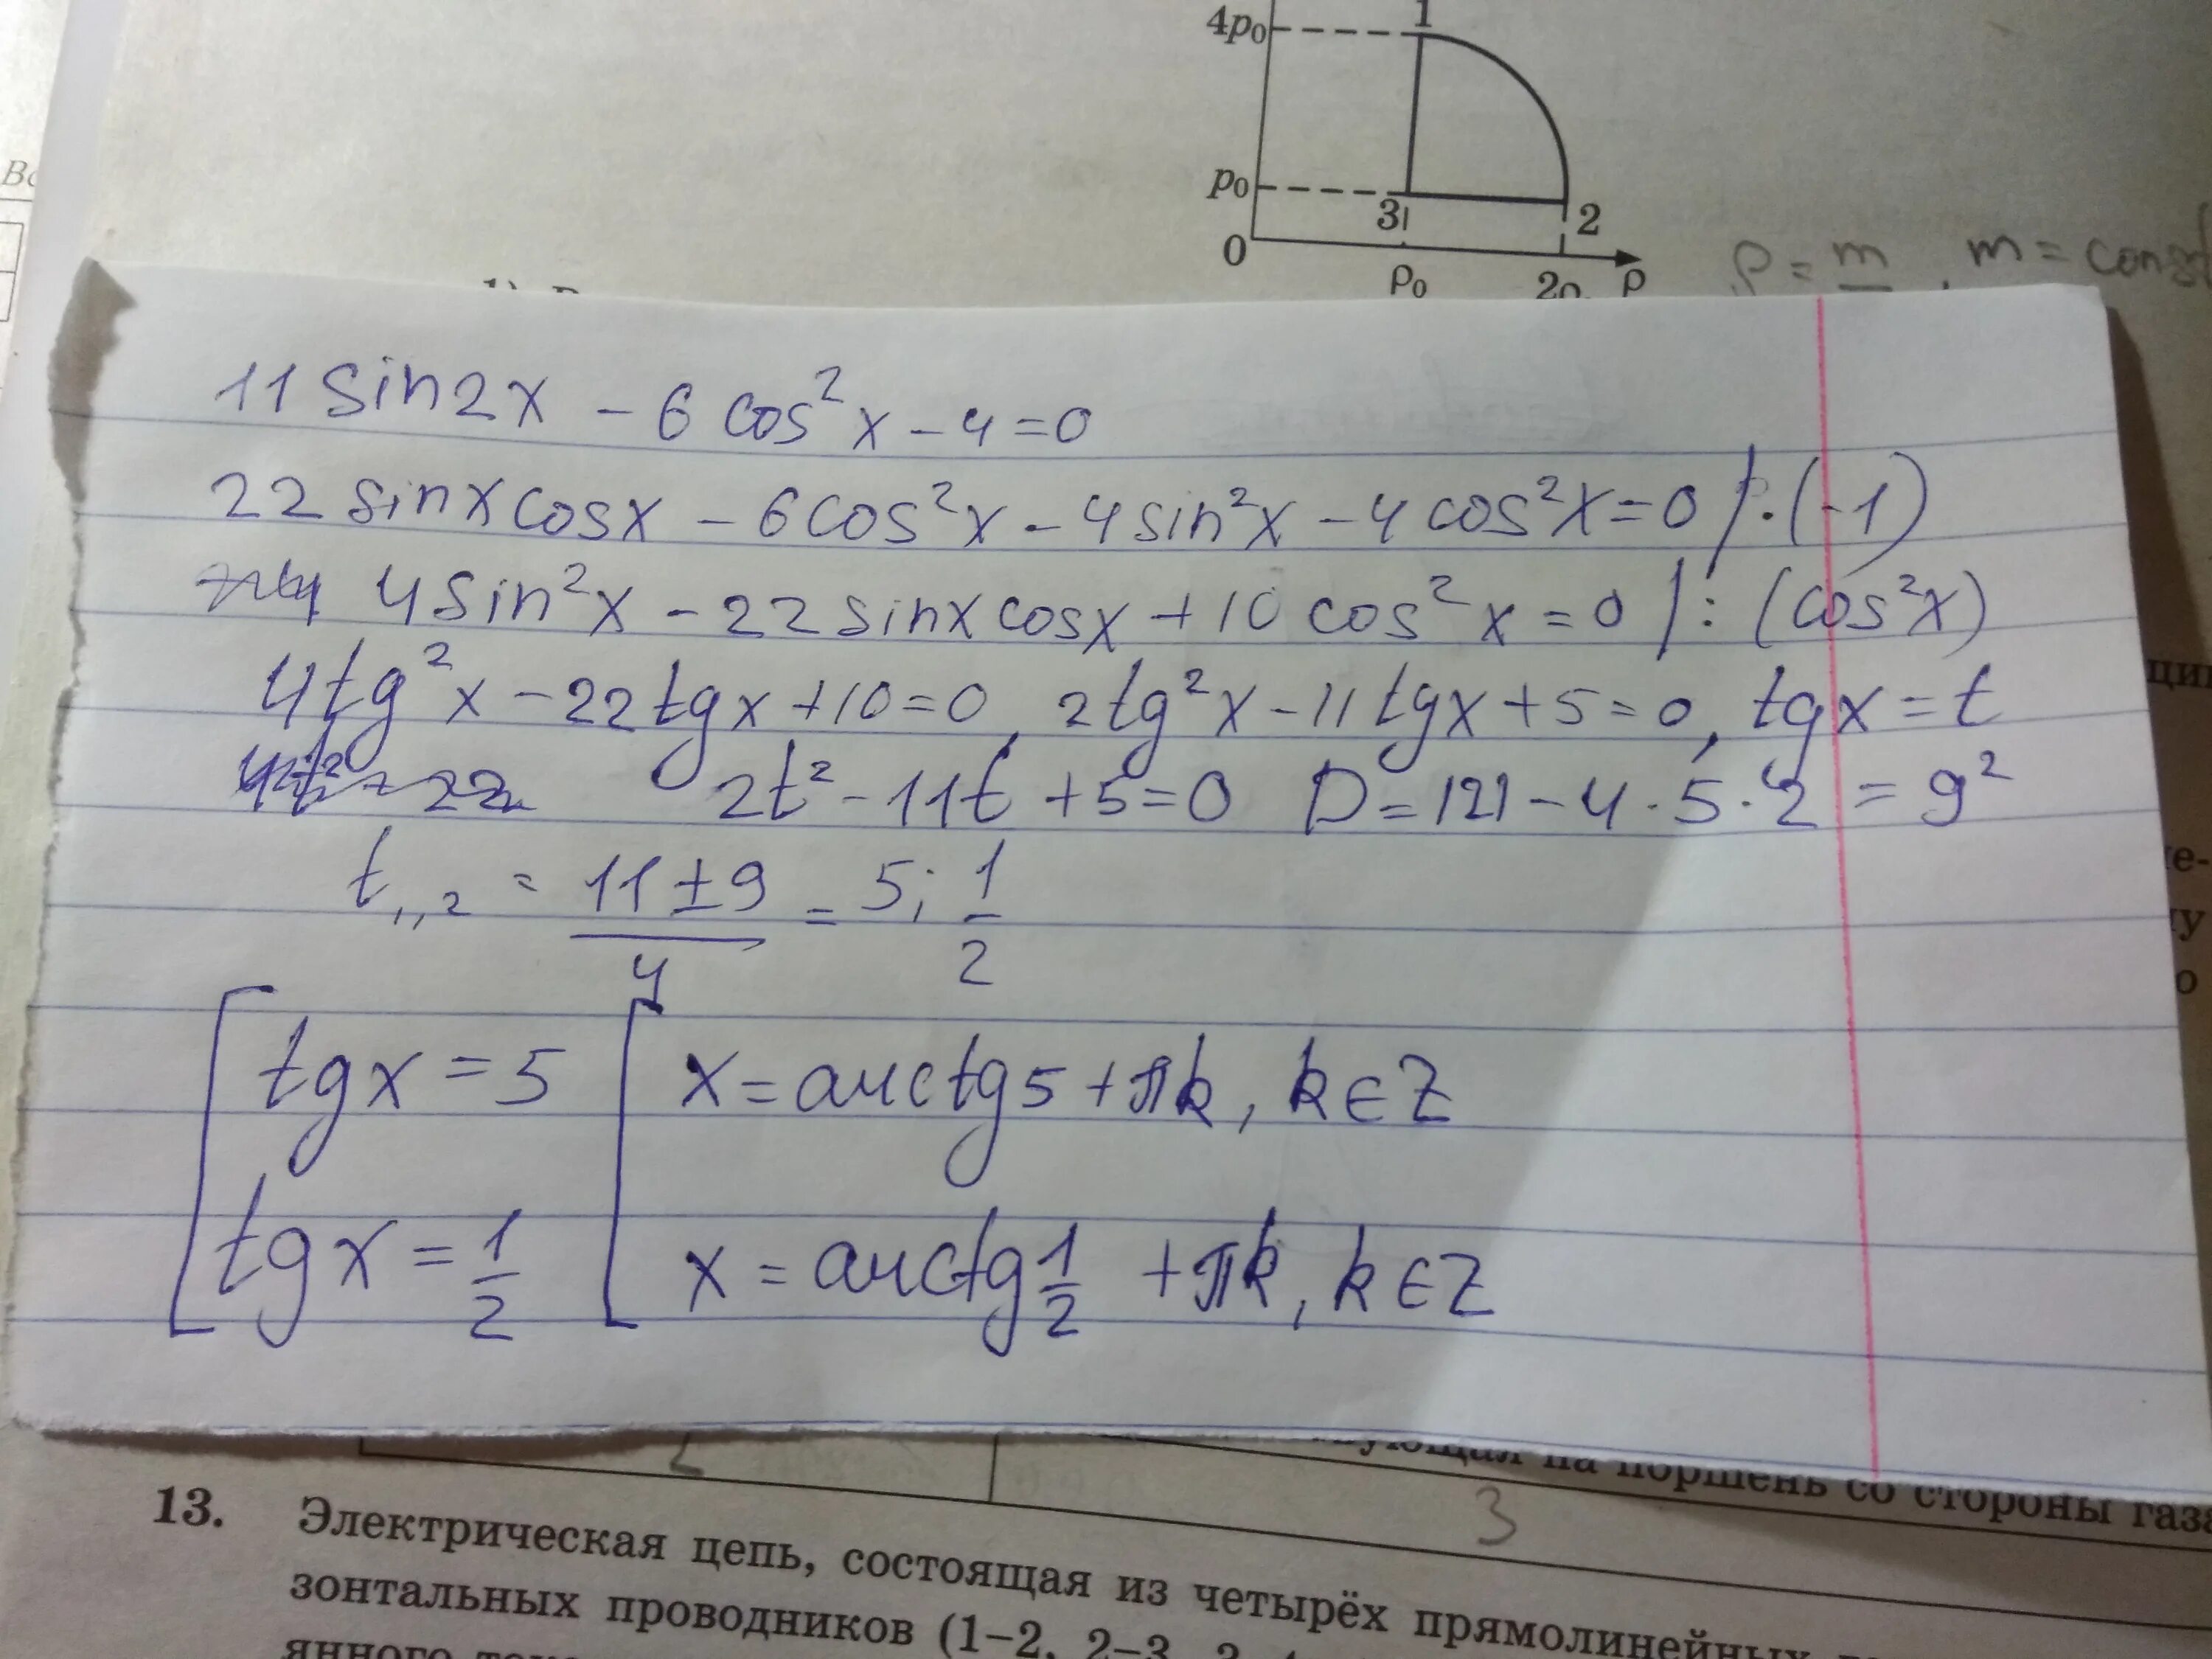 4p₀
1
p₀
3
2
0
ρ₀
ρ
ρ = m , m = const
11 sin2x - 6 cos²x - 4 = 0
22 sinx cosx - 6cos²x - 4sin²x - 4cos²x = 0 /·(-1)
4sin²x - 22 sinx cosx + 10 cos²x = 0 /: (cos²x)
4tg²x - 22tgx + 10 = 0, 2tg²x - 11tgx + 5 = 0, tgx = t
4t² - 22 2t² - 11t + 5 = 0 D = 121 - 4·5·2 = 9²
t₁,₂ = (11 ± 9)/4 = 5; 1/2
[ tgx = 5 [ x = arctg5 + πk, k ∈ Z
tgx = 1/2 x = arctg 1/2 + πk, k ∈ Z
на поршень со стороны
3
13. Электрическая цепь, состоящая из четырёх прямолинейных
зонтальных проводников (1–2, 2–3,